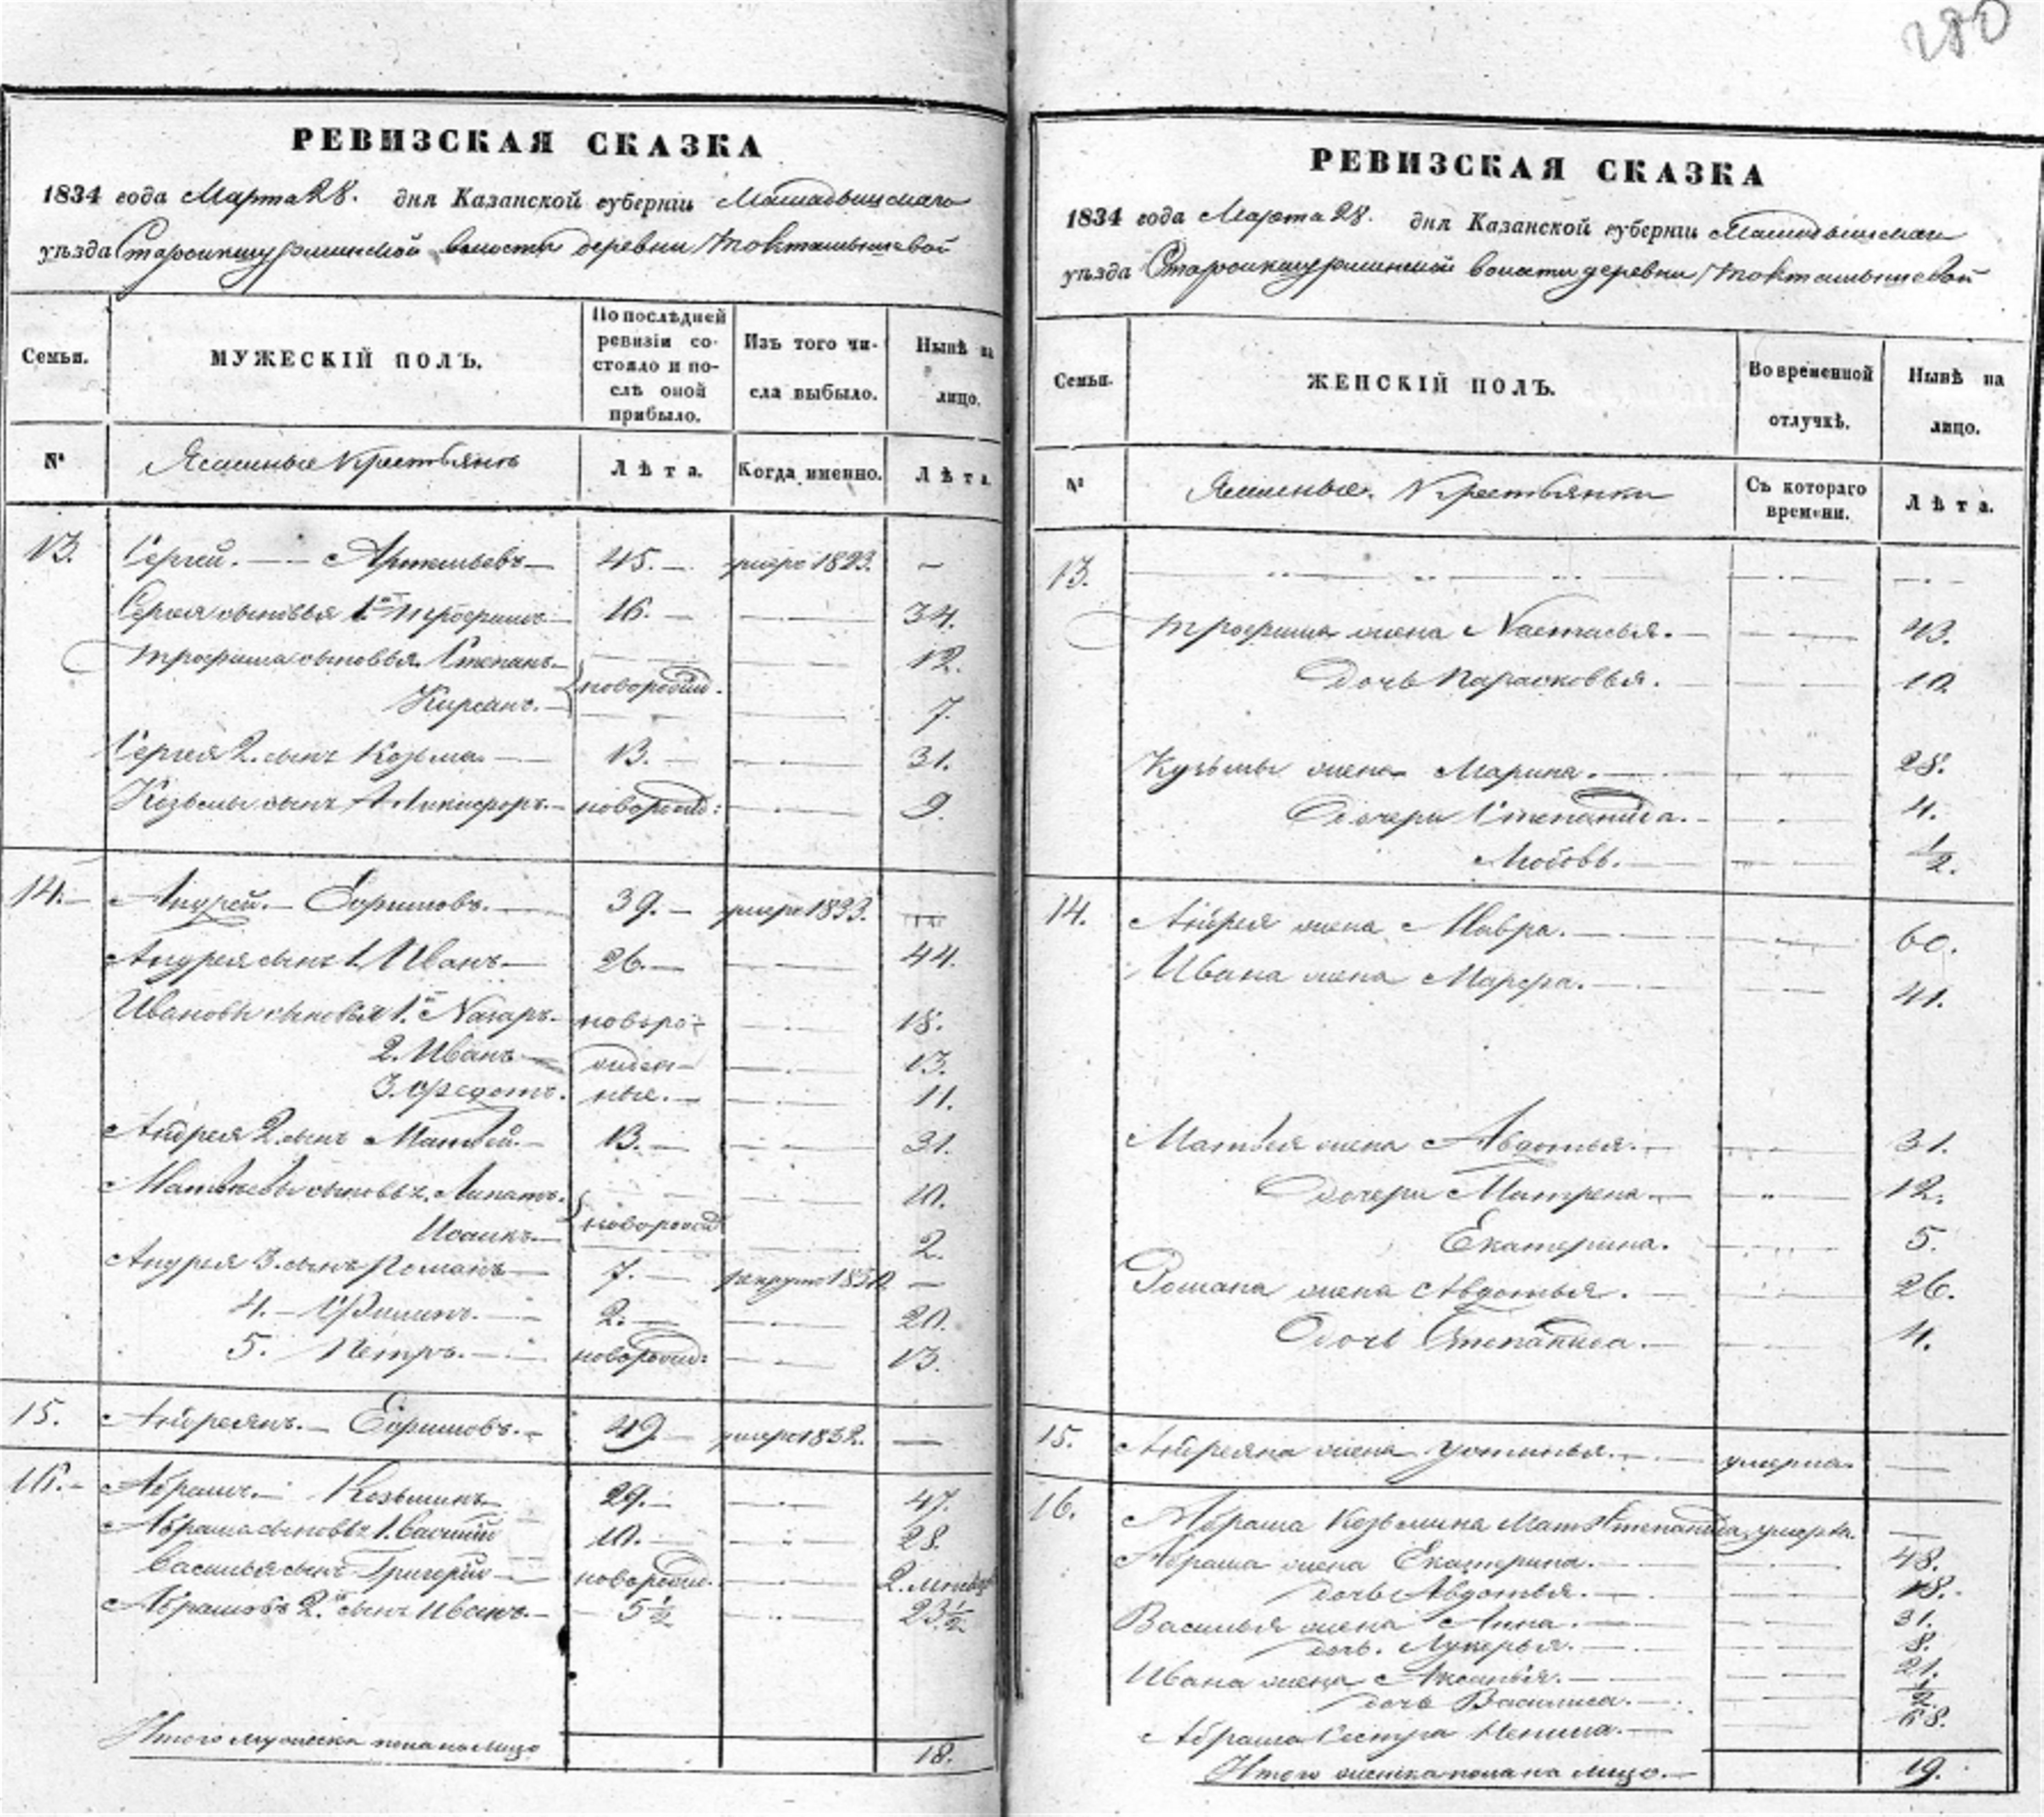 280
РЕВИЗСКАЯ СКАЗКА
1834 года Марта 28. дня Казанской губерніи
уѣзда волости деревни
Семьи. МУЖЕСКІЙ ПОЛЪ. По послѣдней ревизіи состояло и послѣ оной прибыло. Изъ того числа выбыло. Нынѣ на лицо.
№ Ясашные Крестьянѣ Лѣта. Когда именно. Лѣта.
13. Сергѣй. Артемьевъ 45. умре 1823.
Сергея сыновья 1й Трофимъ 16. 34.
Трофима сыновья Степанъ 12.
новорожд.
Кирсанъ. 7.
Сергея 2. сынъ Козьма 13. 31.
Козьмы сынъ Никифоръ новорожд: 9.
14. Андрей. Ефимовъ. 39. умре 1833.
Андрея сынъ 1. Иванъ 26. 44.
Ивановы сыновья 1й Назаръ новоро- 18.
2. Иванъ жден- 13.
3. Федотъ. ные. 11.
Андрея 2. сынъ Матвѣй. 13. 31.
сыновья. Липатъ. 10.
новорожд
2.
Андрея 3. сынъ Романъ 7. рекрут
4. 2. 20.
5. Петръ. новорожд: 13.
15. Андреянъ. Ефимовъ. 49. умре 1832.
16. Абрамъ. Козьминъ 29. 47.
Абрама сыновья 1. Василій 10. 28.
Василья сынъ Григорій новорожд. 2.
Абрамовъ 2.й сынъ Иванъ. 5 1/2 23 1/2
Итого мужеска пола на лицо 18.
РЕВИЗСКАЯ СКАЗКА
1834 года Марта 28. дня Казанской губерніи
уѣзда волости деревни
Семьи. ЖЕНСКІЙ ПОЛЪ. Во временной отлучкѣ. Нынѣ на лицо.
№ Ясашные. Крестьянки Съ котораго времени. Лѣта.
13.
Трофима жена Настасья. 43.
Дочь Парасковья. 10.
Кузьмы жена Марина. 28.
Дочери Степанида. 4.
Любовь. 1/2.
14. Андрея жена Мавра. 60.
Ивана жена Марфа. 41.
Матвея жена Авдотья. 31.
Дочери Матрена. 12.
Екатерина. 5.
Романа жена Авдотья. 26.
Дочь Степанида. 4.
15. Андреяна жена Устинья. умерла.
16. Абрама Козьмина Мать Степанида умерла.
Абрама жена Екатерина. 48.
дочь Авдотья. 18.
Василья жена Анна. 31.
дочь. Лукерья. 8.
Ивана жена Аксинья. 21.
дочь Василиса. 1/2.
Абрама Сестра
Итого женска пола на лицо. 19.